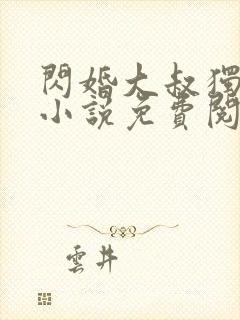 閃婚大叔獨
小說免費閱
雲井